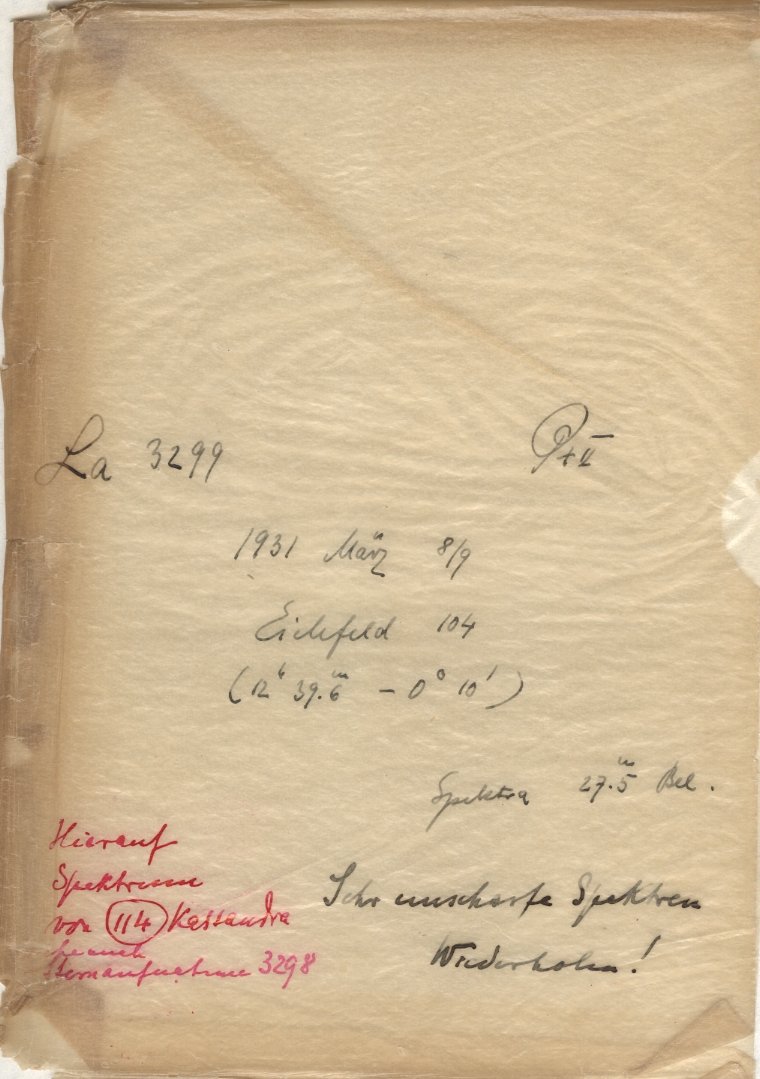 La 3299
P+II
1931 März 8/9
Eichfeld 104
(12h 39.m6 - 0° 10')
Spektra 27.m5 Bel.
Sehr unscharfe Spektren
Wiederholen!
Hierauf
Spektrum
von 114 Kassandra
Sternaufnahme 3298